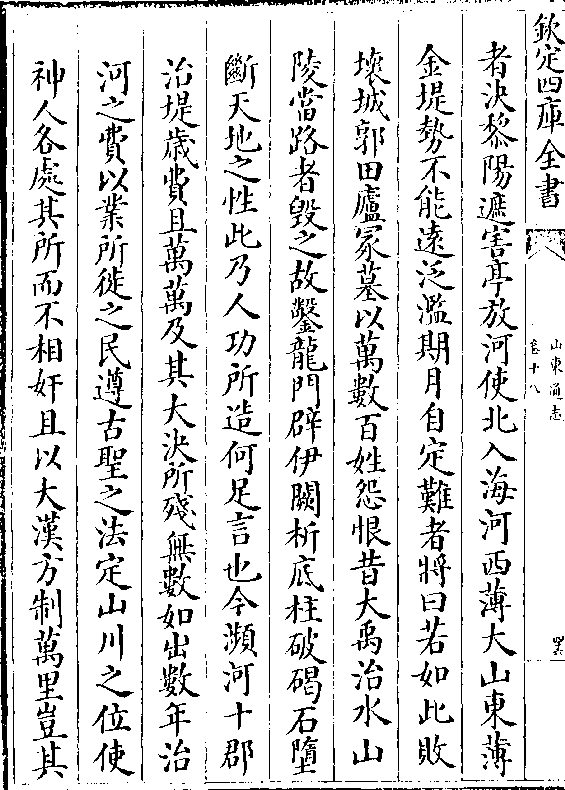 欽定四庫全書
山東通志
卷十八
者決黎陽遮害亭放河使北入海河西薄大山東薄
金堤勢不能遠泛濫期月自定難者將曰若如此敗
壞城郭田廬冢墓以萬數百姓怨恨昔大禹治水山
陵當路者毀之故鑿龍門辟伊闕析底柱破碣石墮
斷天地之性此乃人功所造何足言也今瀕河十郡
治堤歲費且萬萬及其大決所殘無數如出數年治
河之費以業所徙之民遵古聖之法定山川之位使
神人各處其所而不相奸且以大漢方制萬里豈其